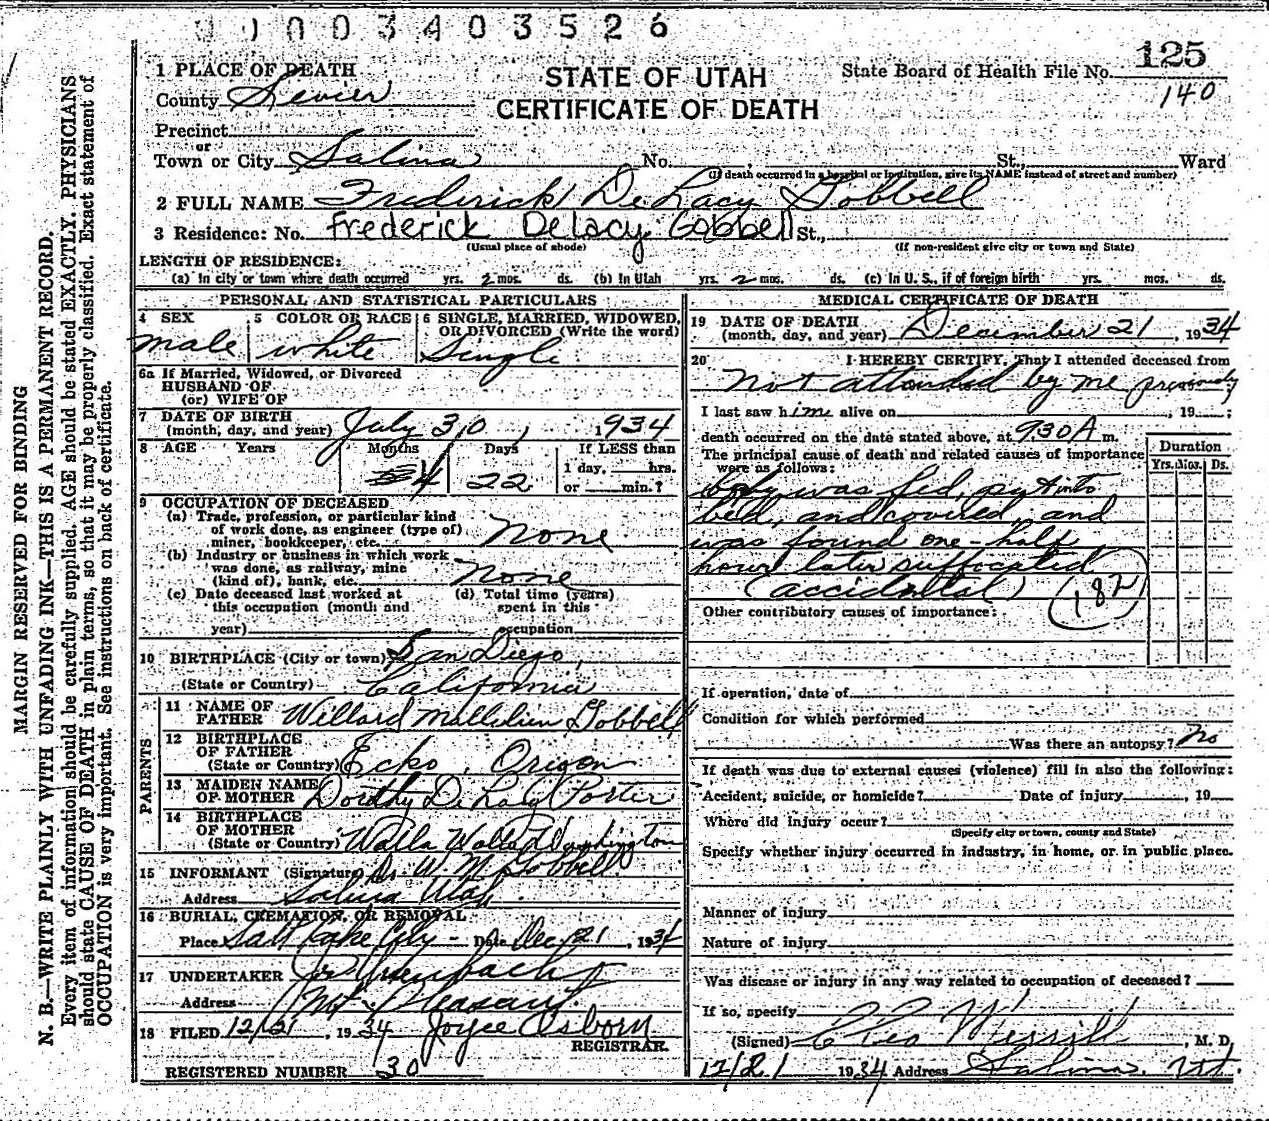 11003403526
125
140
MARGIN RESERVED FOR BINDING
N. B.—WRITE PLAINLY WITH UNFADING INK—THIS IS A PERMANENT RECORD.
Every item of information should be carefully supplied. AGE should be stated EXACTLY. PHYSICIANS
should state CAUSE OF DEATH in plain terms, so that it may be properly classified. Exact statement of
OCCUPATION is very important. See instructions on back of certificate.
STATE OF UTAH
CERTIFICATE OF DEATH
State Board of Health File No.
1 PLACE OF DEATH
County Sevier
Precinct
or
Town or City Salina No. , St., Ward
(If death occurred in a hospital or institution, give its NAME instead of street and number)
2 FULL NAME Frederick DeLacy Gobbell
3 Residence: No. Frederick Delacy Gobbell St.,
(Usual place of abode) (If non-resident give city or town and State)
LENGTH OF RESIDENCE:
(a) In city or town where death occurred yrs. 2 mos. ds. (b) In Utah yrs. 2 mos. ds. (c) In U. S., if of foreign birth yrs. mos. ds.
PERSONAL AND STATISTICAL PARTICULARS
4 SEX male
5 COLOR OR RACE white
6 SINGLE, MARRIED, WIDOWED,
OR DIVORCED (Write the word)
Single
6a If Married, Widowed, or Divorced
HUSBAND OF
(or) WIFE OF
7 DATE OF BIRTH
(month, day, and year) July 30, 1934
8 AGE Years Months Days If LESS than
4 22 1 day, hrs.
or min.?
9 OCCUPATION OF DECEASED
(a) Trade, profession, or particular kind
of work done, as engineer (type of)
miner, bookkeeper, etc. None
(b) Industry or business in which work
was done, as railway, mine
(kind of), bank, etc. None
(c) Date deceased last worked at (d) Total time (years)
this occupation (month and spent in this
year) occupation
10 BIRTHPLACE (City or town) San Diego,
(State or Country) California
PARENTS
11 NAME OF
FATHER Willard Gobbell
12 BIRTHPLACE
OF FATHER
(State or Country) Ecko, Oregon
13 MAIDEN NAME
OF MOTHER Dorothy DeLacy Porter
14 BIRTHPLACE
OF MOTHER
(State or Country) Walla Walla Washington
15 INFORMANT (Signature) Dr. W. M. Gobbell
Address Salina Utah
16 BURIAL, CREMATION, OR REMOVAL
Place Salt Lake City - Date Dec 21, 1934
17 UNDERTAKER
Address Mt. Pleasant.
18 FILED 12/21, 1934 Joyce Osborn
REGISTRAR.
REGISTERED NUMBER 30
MEDICAL CERTIFICATE OF DEATH
19 DATE OF DEATH
(month, day, and year) December 21, 1934
20 I HEREBY CERTIFY, That I attended deceased from
Not attended by me previously
I last saw him alive on , 19 ;
death occurred on the date stated above, at 9:30 A m.
The principal cause of death and related causes of importance
were as follows:
Duration
Yrs. Mos. Ds.
Baby was fed, put into
bed, and covered, and
was found one-half
hour later suffocated
(accidental) (182)
Other contributory causes of importance:
If operation, date of
Condition for which performed
Was there an autopsy? No
If death was due to external causes (violence) fill in also the following:
Accident, suicide, or homicide? Date of injury , 19
Where did injury occur?
(Specify city or town, county and State)
Specify whether injury occurred in industry, in home, or in public place.
Manner of injury
Nature of injury
Was disease or injury in any way related to occupation of deceased?
If so, specify
(Signed) Merrill, M. D.
12/21 1934 Address Salina, Ut.